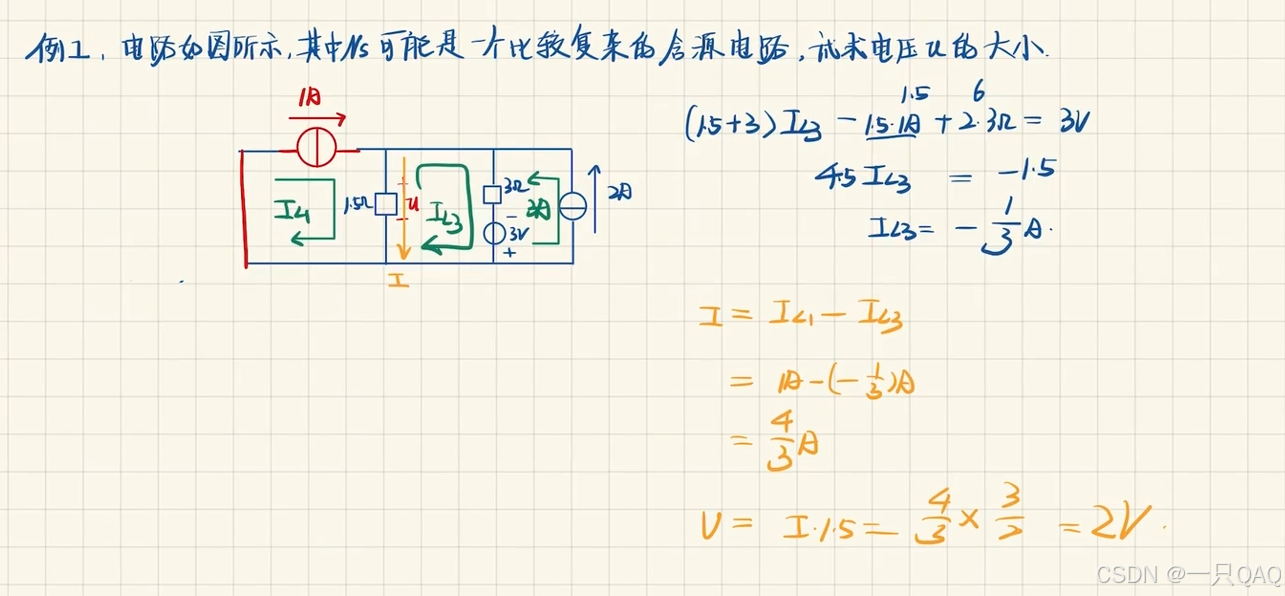 例1. 电路如图所示,其中Ns可能是一个比较复杂的含源电路,试求电压u的大小.
1A
IL1
1.5Ω
+
u
-
I
IL3
3Ω
-
3V
+
2A
2A
1.5 6
(1.5+3)IL3 - 1.5·1A + 2·3Ω = 3V
4.5 IL3 = -1.5
IL3 = -1/3 A.
I = IL1 - IL3
= 1A-(-1/3)A
= 4/3 A
U = I·1.5 = 4/3 × 3/2 = 2V.
CSDN @一只QAQ